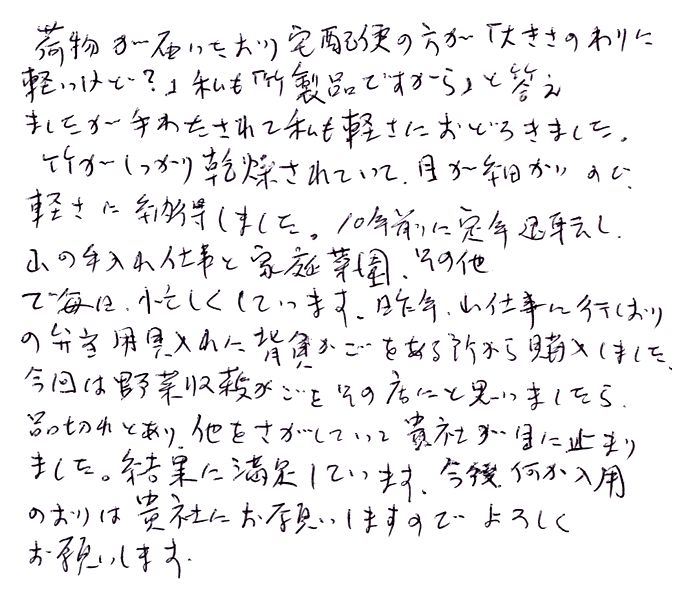 荷物が届いたおり宅配便の方が「大きさのわりに
軽いけど?」私も「竹製品ですから」と答え
ましたが手わたされて私も軽さにおどろきました。
竹がしっかり乾燥されていて、目が細かいので、
軽さに納得しました。10年前に定年退職し、
山の手入れ仕事と家庭菜園、その他
で毎日、忙しくしています。昨年、山仕事に行くおり
の弁当用具入れに背負かごをある所から購入しました。
今回は野菜収穫かごをその店にと思いましたら、
品切れとあり、他をさがしていて貴社が目に止まり
ました。結果に満足しています。今後、何か入用
のおりは貴社にお願いしますのでよろしく
お願いします。